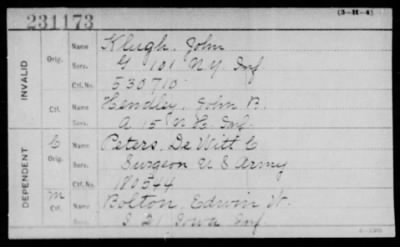 (3-H-4)
231173
INVALID
Orig. Name Klugh, John
Serv. G 101 N.Y. Inf
Ctf. No. 530710
Ctf. Name Hendley, John B.
Serv. A 15 N H. Inf.
DEPENDENT
C Orig. Name Peters, De Witt C
Serv. Surgeon U S Army
Ctf. No. 180544
M Ctf. Name Bolton, Edwin W.
Serv. I 21 Iowa Inf.